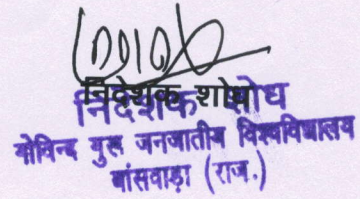 निदेशक शोध
निदेशक शोध
गोविन्द गुरू जनजातीय विश्वविद्यालय
बांसवाड़ा (राज.)